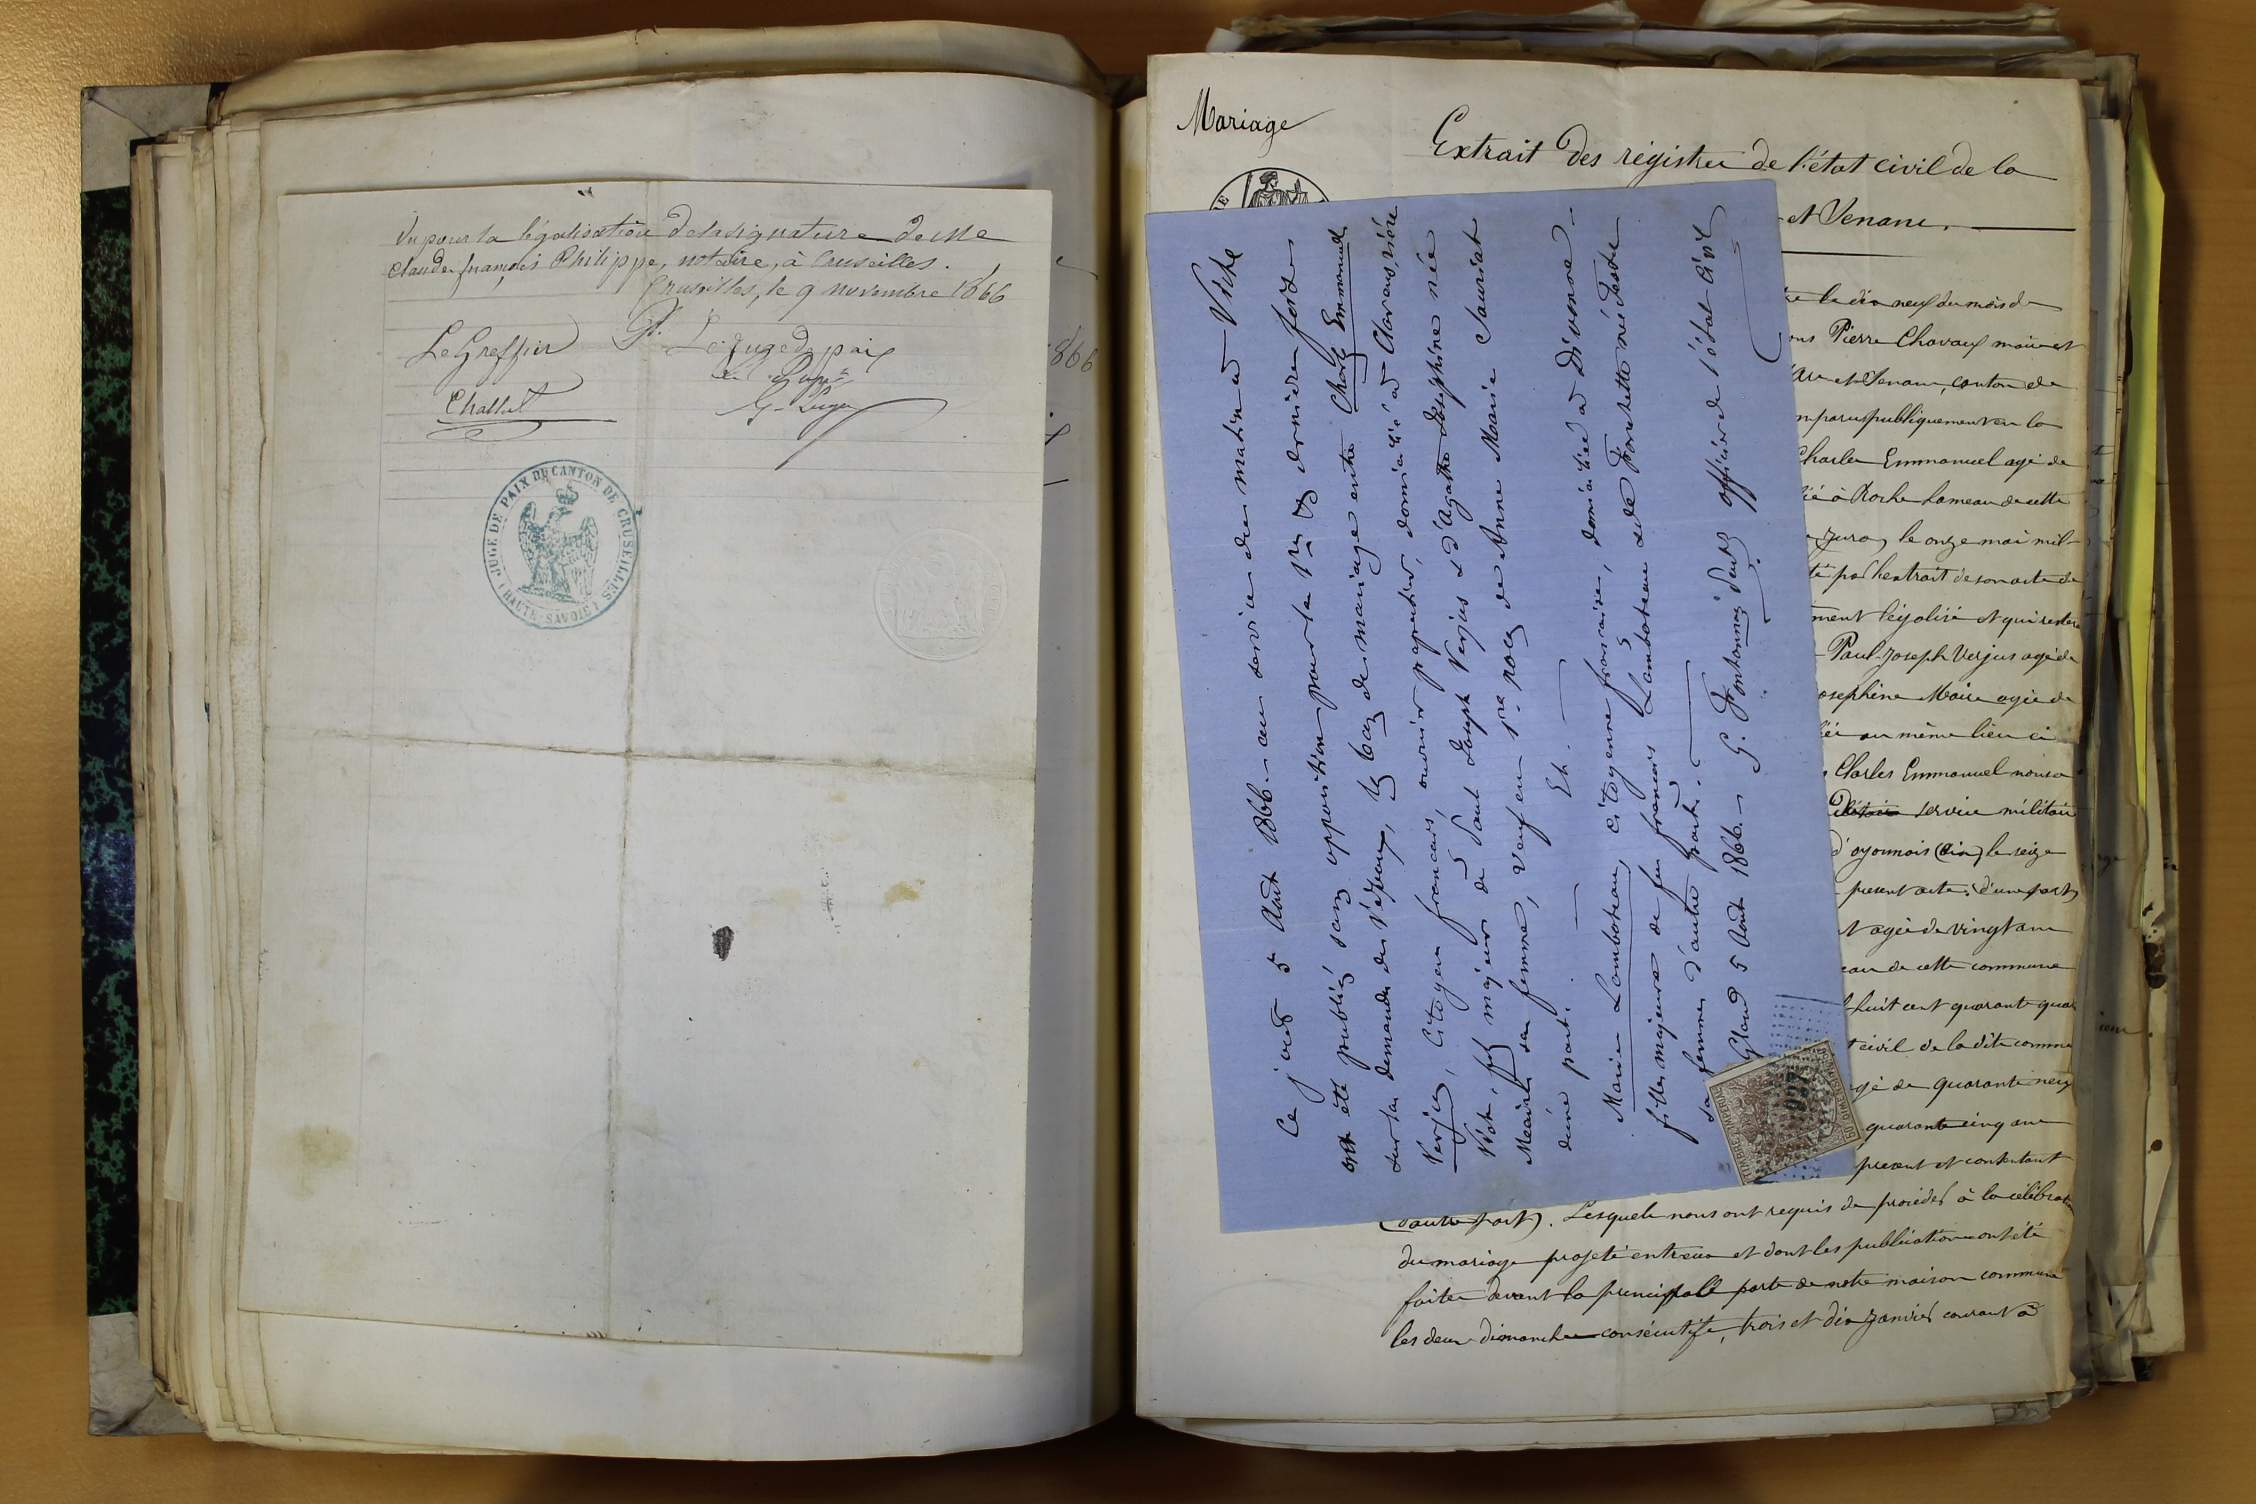 Vu pour la légalisation de la signature de Me
Claude françois Philippe, notaire, à Cruseilles.
Cruseilles, le 9 novembre 1866
Le Greffier
Le Juge de paix
Challut
JUGE DE PAIX DU CANTON DE CRUSEILLES
(HAUTE-SAVOIE)
1866
Mariage
Extrait des régistres de l'état civil de la
et Senans.
Ce jour 5 Août 1866. au service du matin à Viche
ont été publiés sans opposition pour la 1re & dernière fois
sur la demande des époux, les bans de mariage entre Charles Emmanuel
Verjus, citoyen français, ouvrier papetier, domicilié à Clarens rière
Viche, fils majeur de Paul Joseph Verjus & d'Agathe Josephine née
Maire sa femme, veuf en 1res noces de Anne Marie Sauriat
d'une part. Et.
Marie Lamboteau, citoyenne française, domiciliée à Divonne
fille majeure de feu françois Lamboteau & de Fanchette née Feste
sa femme d'autre part.
Gland 5 Août 1866. G. Fontannaz officier de l'état civil
ce le dix neuf du mois de
ons Pierre Chavaux maire et
Arc et Senans, canton de
mparus publiquement en la
Charles Emmanuel agé de
lié à Roche hameau de cette
Jura, le onze mai mil
té par l'extrait de son acte de
ment légalisé et qui restera
Paul-Joseph Verjus agé de
osephine Maire agée de
iée au même lieu ci
Charles Emmanuel nous a
service militaire
d'oyonnais (ain) le seize
present acte; d'une part
t agée de vingt ans
eau de cette commune
huit cent quarante quatre
t civil de la dite commune
gé de quarante neuf
quarante cinq ans
present et contentant
d'autre part). Lesquels nous ont requis de procéder à la célébration
du mariage projeté entr'eux et dont les publications ont été
faites devant la principale porte de notre maison commune
les deux dimanches consécutifs, trois et dix janvier courant à